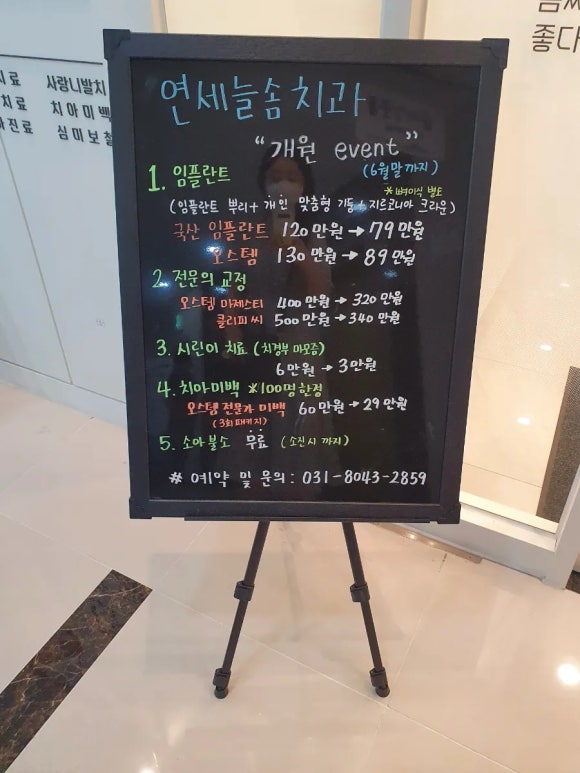 연세늘솜치과
“개원 event”
(6월말까지)
1. 임플란트
※뼈이식 별도
(임플란트 뿌리+개인 맞춤형 기둥+지르코니아 크라운)
국산 임플란트 120만원→79만원
오스템 130만원→89만원
2. 전문의 교정
오스템 마제스티 400만원→320만원
클리피씨 500만원→340만원
3. 시린이 치료 (치경부 마모증)
6만원→3만원
4. 치아미백 ※100명한정
오스템 전문가 미백 60만원→29만원
(3회패키지)
5. 소아불소 무료 (소진시 까지)
# 예약 및 문의 : 031-8043-2859
치료 사랑니발치
치료 치아미백
진료 심미보철
좋다